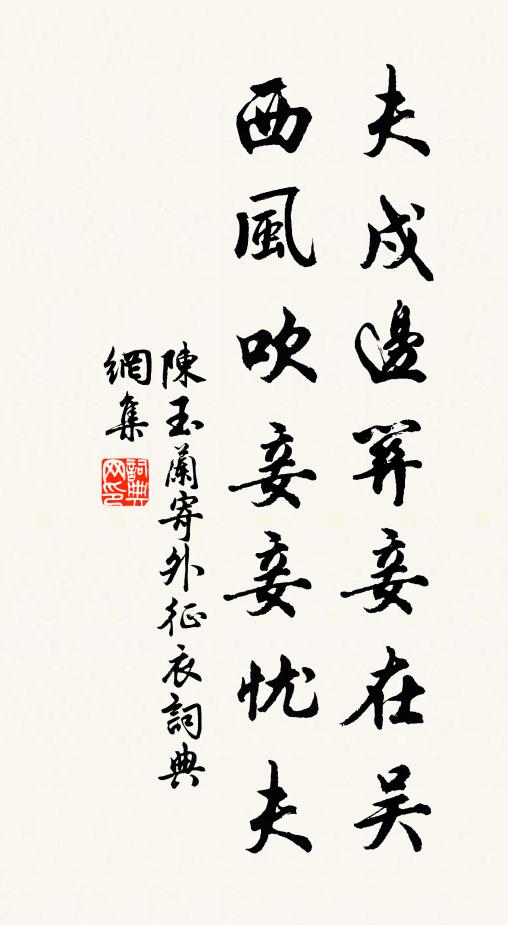 夫戍邊關妾在吴
西風吹妾妾忧夫
陳玉蘭寄外征衣詞典
網集
詞典网印